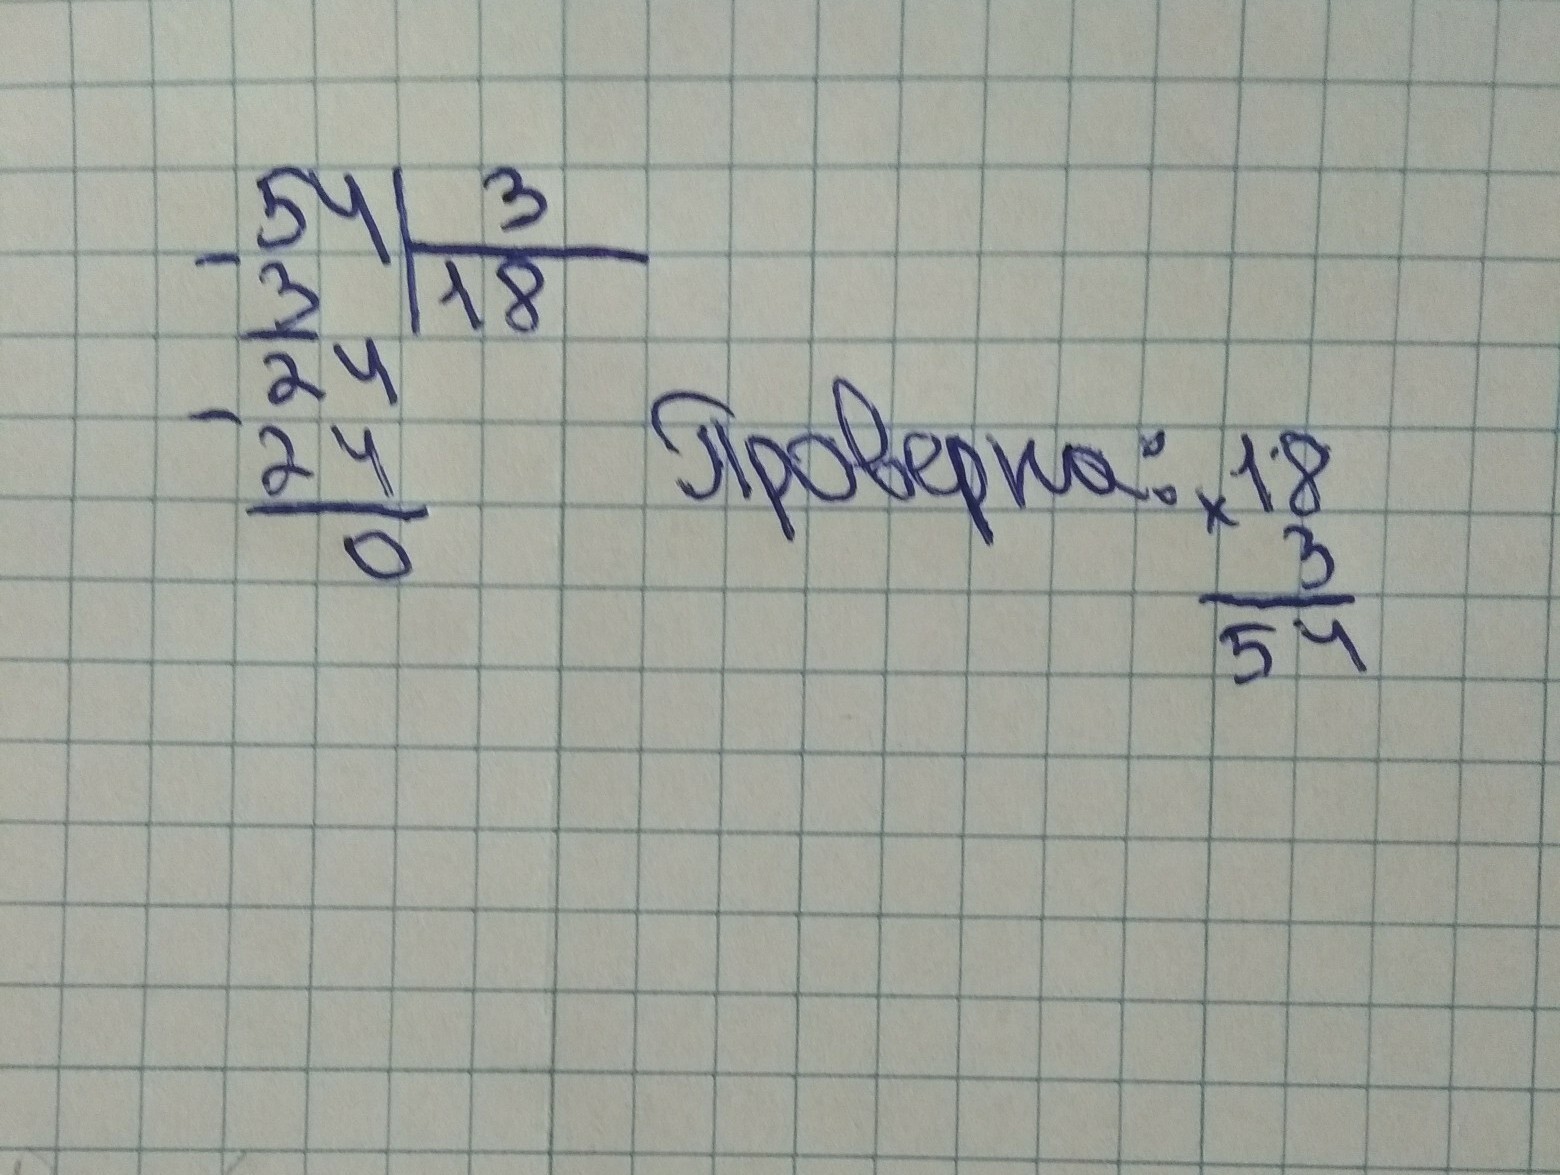 54 | 3
- 3 | 18
24
- 24
0
Проверка: × 18
3
54